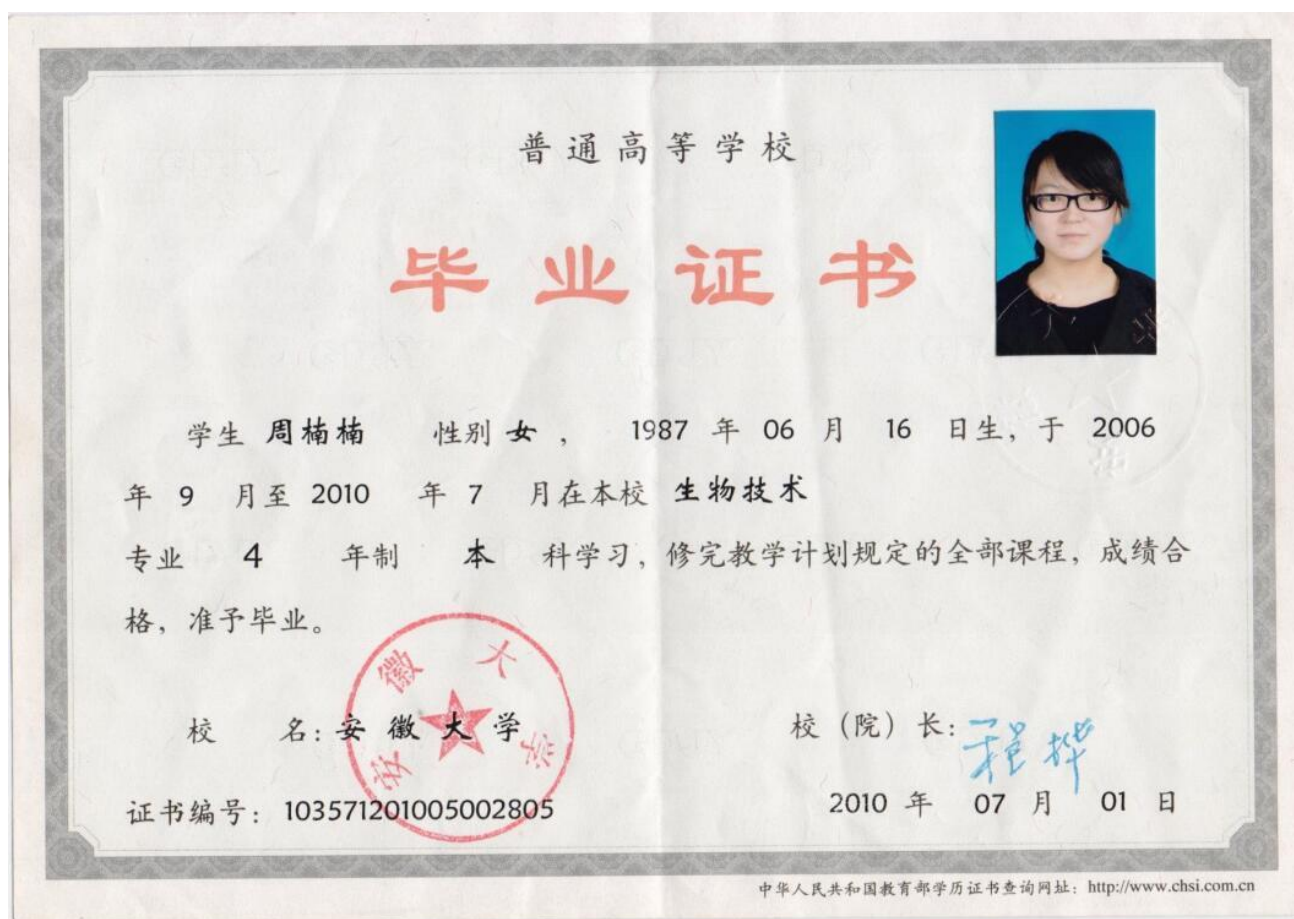 普通高等学校
毕业证书
学生 周楠楠 性别 女 , 1987 年 06 月 16 日生, 于 2006
年 9 月至 2010 年 7 月在本校 生物技术
专业 4 年制 本 科学习, 修完教学计划规定的全部课程, 成绩合
格, 准予毕业。
安徽大学
校 名: 安徽大学
校 (院) 长: 程桦
证书编号: 103571201005002805
2010 年 07 月 01 日
中华人民共和国教育部学历证书查询网址: http://www.chsi.com.cn